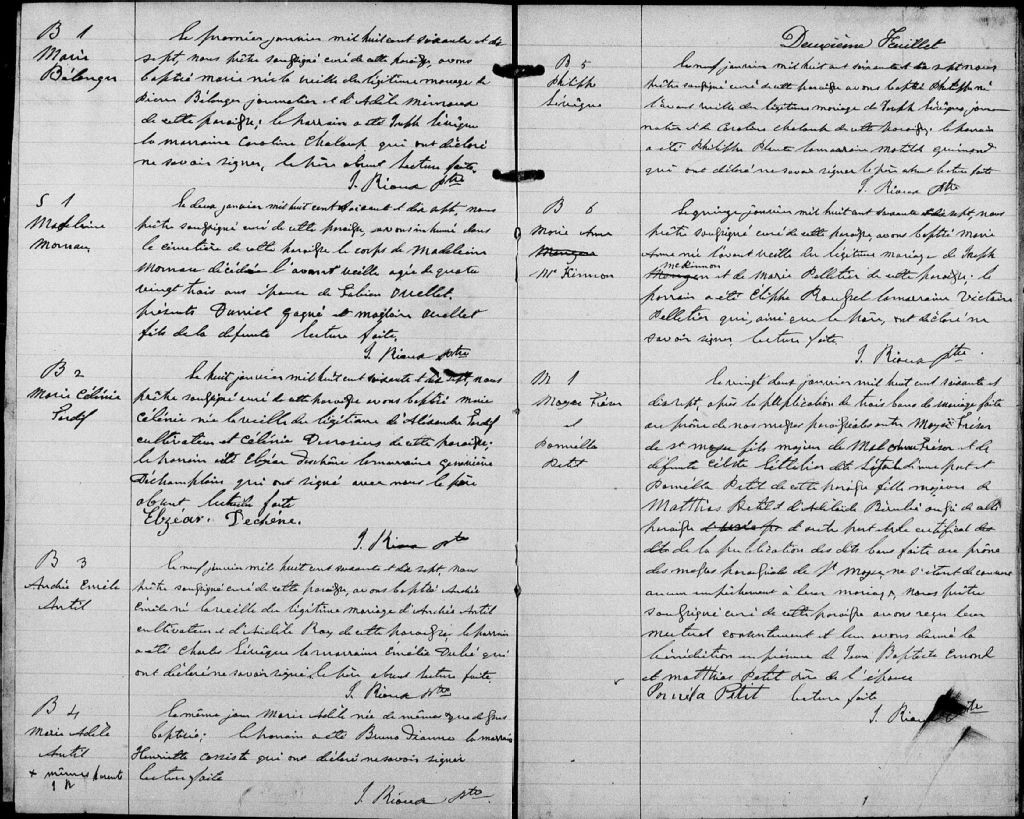 B 1
Marie
Bélanger
Le premier janvier mil huit cent soixante et dix
sept, nous prêtre soussigné curé de cette paroisse, avons
baptisé marie née la veille du légitime mariage de
Pierre Bélanger journalier et d'Adèle
de cette paroisse; le parrain a été Joseph Lévêque
la marraine Caroline Chaloup qui ont déclaré
ne savoir signer, le père absent lecture faite.
J. Rioux ptre
S 1
Madeleine
Morneau
Le deux janvier mil huit cent soixante et dix sept, nous
prêtre soussigné curé de cette paroisse, avons inhumé dans
le cimetière de cette paroisse le corps de Madeleine
Morneau décédée l'avant veille agée de quatre
vingt trois ans épouse de Fabien Ouellet.
présents Daniel Gagné et magloire Ouellet
fils de la défunte lecture faite.
J. Rioux ptre
B 2
Marie Célénie
Le huit janvier mil huit cent soixante et dix sept, nous
prêtre soussigné curé de cette paroisse avons baptisé marie
Célénie née la veille du légitime d'Alexandre
cultivateur et Célénie Desrosiers de cette paroisse.
le parrain a été Elzéar Deschêne la marraine genevieve
Déchamplain qui ont signé avec nous le père
absent lecture faite
Elzéar. Dechêne.
J. Rioux ptre
B 3
André Emile
Autil
Le neuf janvier mil huit cent soixante et dix sept, nous
prêtre soussigné curé de cette paroisse, avons baptisé André
Emile né la veille du légitime mariage d'André Autil
cultivateur et d'Adèle Roy de cette paroisse, le parrain
a été Charles Lévêque la marraine Emélie Dubé qui
ont déclaré ne savoir signer, le père absent lecture faite.
J. Rioux ptre
B 4
Marie Adèle
Autil
+ même parents
1 N
Le même jour Marie Adèle née de même
baptisée; le parrain a été Bruno Dionne la marraine
Henriette qui ont déclaré ne savoir signer
lecture faite
J. Rioux ptre.
Deuxième Feuillet
B 5
Philippe
Lévêque
Le neuf janvier mil huit cent soixante et dix sept nous
prêtre soussigné curé de cette paroisse avons baptisé Philippe né
l'avant veille du légitime mariage de Joseph Lévêque, jour-
nalier et de Caroline chaloup de cette paroisse. le parrain
a été Philippe Plante la marraine Matilde guimond
qui ont déclaré ne savoir signer le père absent lecture faite
J. Rioux ptre
B 6
Marie Anne
Mc Kinnon
Le quinze janvier mil huit cent soixante et dix sept, nous
prêtre soussigné curé de cette paroisse, avons baptisé Marie
Anne née l'avant veille du légitime mariage de Joseph
McKinnon
et de Marie Pelletier de cette paroisse. le
parrain a été Eliphe la marraine Victoire
Pelletier qui, ainsi que le père, ont déclaré ne
savoir signer lecture faite
J. Rioux ptre.
M 1
Moyse
et
Domitilde
Petit
Le vingt deux janvier mil huit cent soixante et
dix sept, après la publication de trois bans de mariage faite
au prône de nos messes paroissiales entre Moyse
de St moyse fils majeur de et de
défunte d'une part et
Domitilde Petit de cette paroisse fille majeure de
Matthias Petit et d'Adélaïde aussi de cette
paroisse d'autre part. Vu le certificat
de la publication des dits bans faite au prône
des messes paroissiales de St Moyse, ne s'étant découvert
aucun empêchement à leur mariage, nous prêtre
soussigné curé de cette paroisse avons reçu leur
mutuel consentement et leur avons donné la
bénédiction en présence de Jean Baptiste Emond
et matthias Petit père de l'épouse
Petit lecture faite
J. Rioux ptre
1